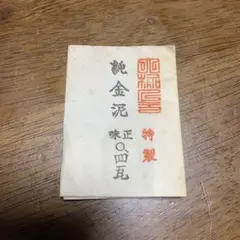 特製
純金泥
正味
〇.四瓦